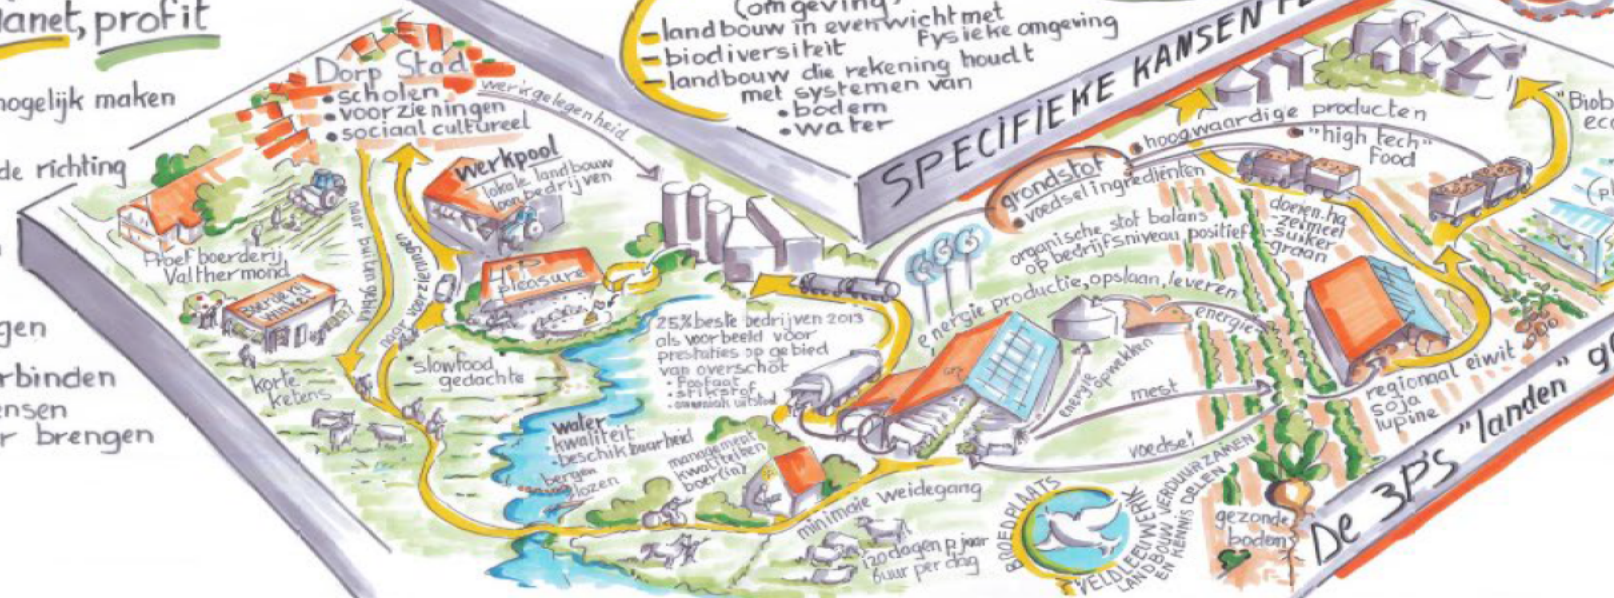 lanet, profit
mogelijk maken
de richting
gen
rbinden
ensen
r brengen
(omgeving)
landbouw in evenwicht met
fysieke omgeving
biodiversiteit
landbouw die rekening houdt
met systemen van
• bodem
• water
Dorp Stad
• scholen
• voorzieningen
• sociaal cultureel
werkgelegenheid
werkpool
lokale landbouw
loon bedrijven
naar buitengebied
naar voorzieningen
Proefboerderij
Valthermond
Boerderij
winkel
pleasure
korte
ketens
slowfood
gedachte
25% beste bedrijven 2013
als voorbeeld voor
prestaties op gebied
van overschot
• fosfaat
• stikstof
water
kwaliteit
beschikbaarheid
bergen
lozen
management
kwaliteiten
boer(in)
minimale weidegang
120 dagen p. jaar
6 uur per dag
SPECIFIEKE KANSEN
grondstof
• voedselingrediënten
• hoogwaardige producten
• "high tech"
Food
"Biob
ec
organische stof balans
op bedrijfsniveau positief
-zetmeel
-suiker
-graan
energie productie, opslaan, leveren
energie
energie opwekken
mest
voedsel
regionaal eiwit
soja
lupine
gezonde
bodem
BROEDPLAATS
VELDLEEUWERIK
LANDBOUW VERDUURZAMEN
EN KENNIS DELEN
De 3P's "landen"